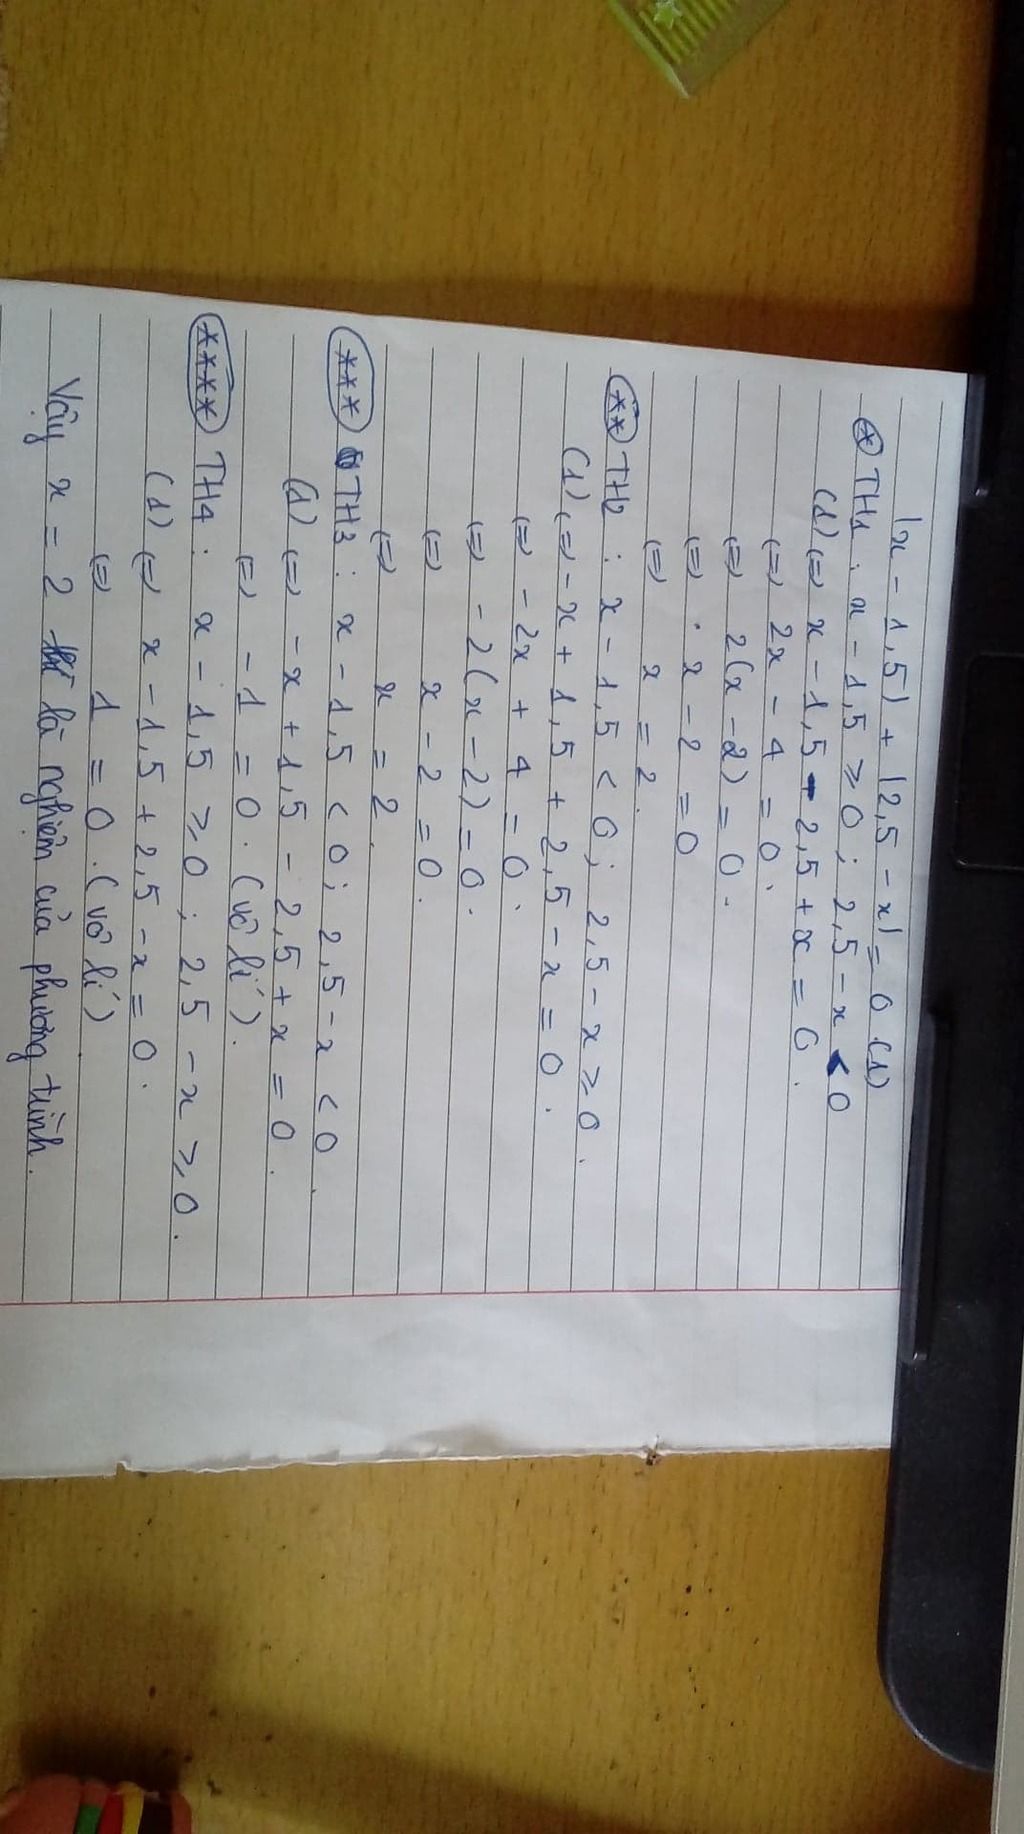 |x - 1,5| + |2,5 - x| = 0 (1)
* TH1 : x - 1,5 ≥ 0 ; 2,5 - x < 0
(1) <=> x - 1,5 - 2,5 + x = 0.
<=> 2x - 4 = 0.
<=> 2(x - 2) = 0.
<=> x - 2 = 0
<=> x = 2.
** TH2 : x - 1,5 < 0 ; 2,5 - x ≥ 0.
(1) <=> - x + 1,5 + 2,5 - x = 0.
<=> - 2x + 4 = 0.
<=> - 2(x - 2) = 0.
<=> x - 2 = 0.
<=> x = 2.
*** TH3 : x - 1,5 < 0 ; 2,5 - x < 0.
(1) <=> - x + 1,5 - 2,5 + x = 0.
<=> - 1 = 0. (vô lí).
**** TH4 : x - 1,5 ≥ 0 ; 2,5 - x ≥ 0.
(1) <=> x - 1,5 + 2,5 - x = 0.
<=> 1 = 0. (vô lí)
Vậy x = 2 là nghiệm của phương trình.